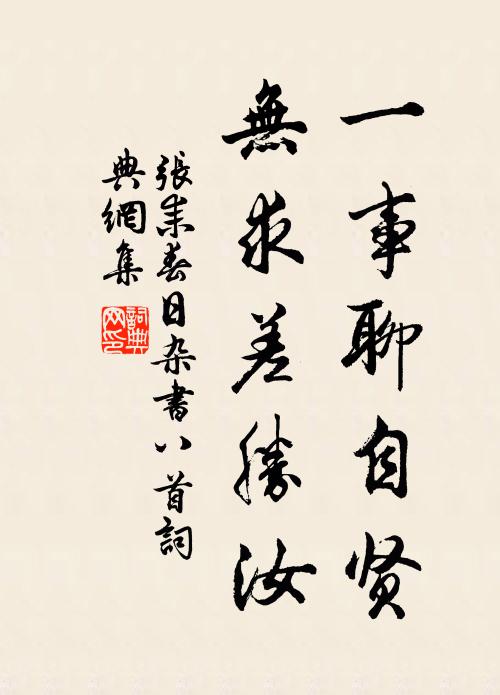 一事聊自贤
無求差勝汝
張耒春日杂書八首詞
典網集
詞典网印